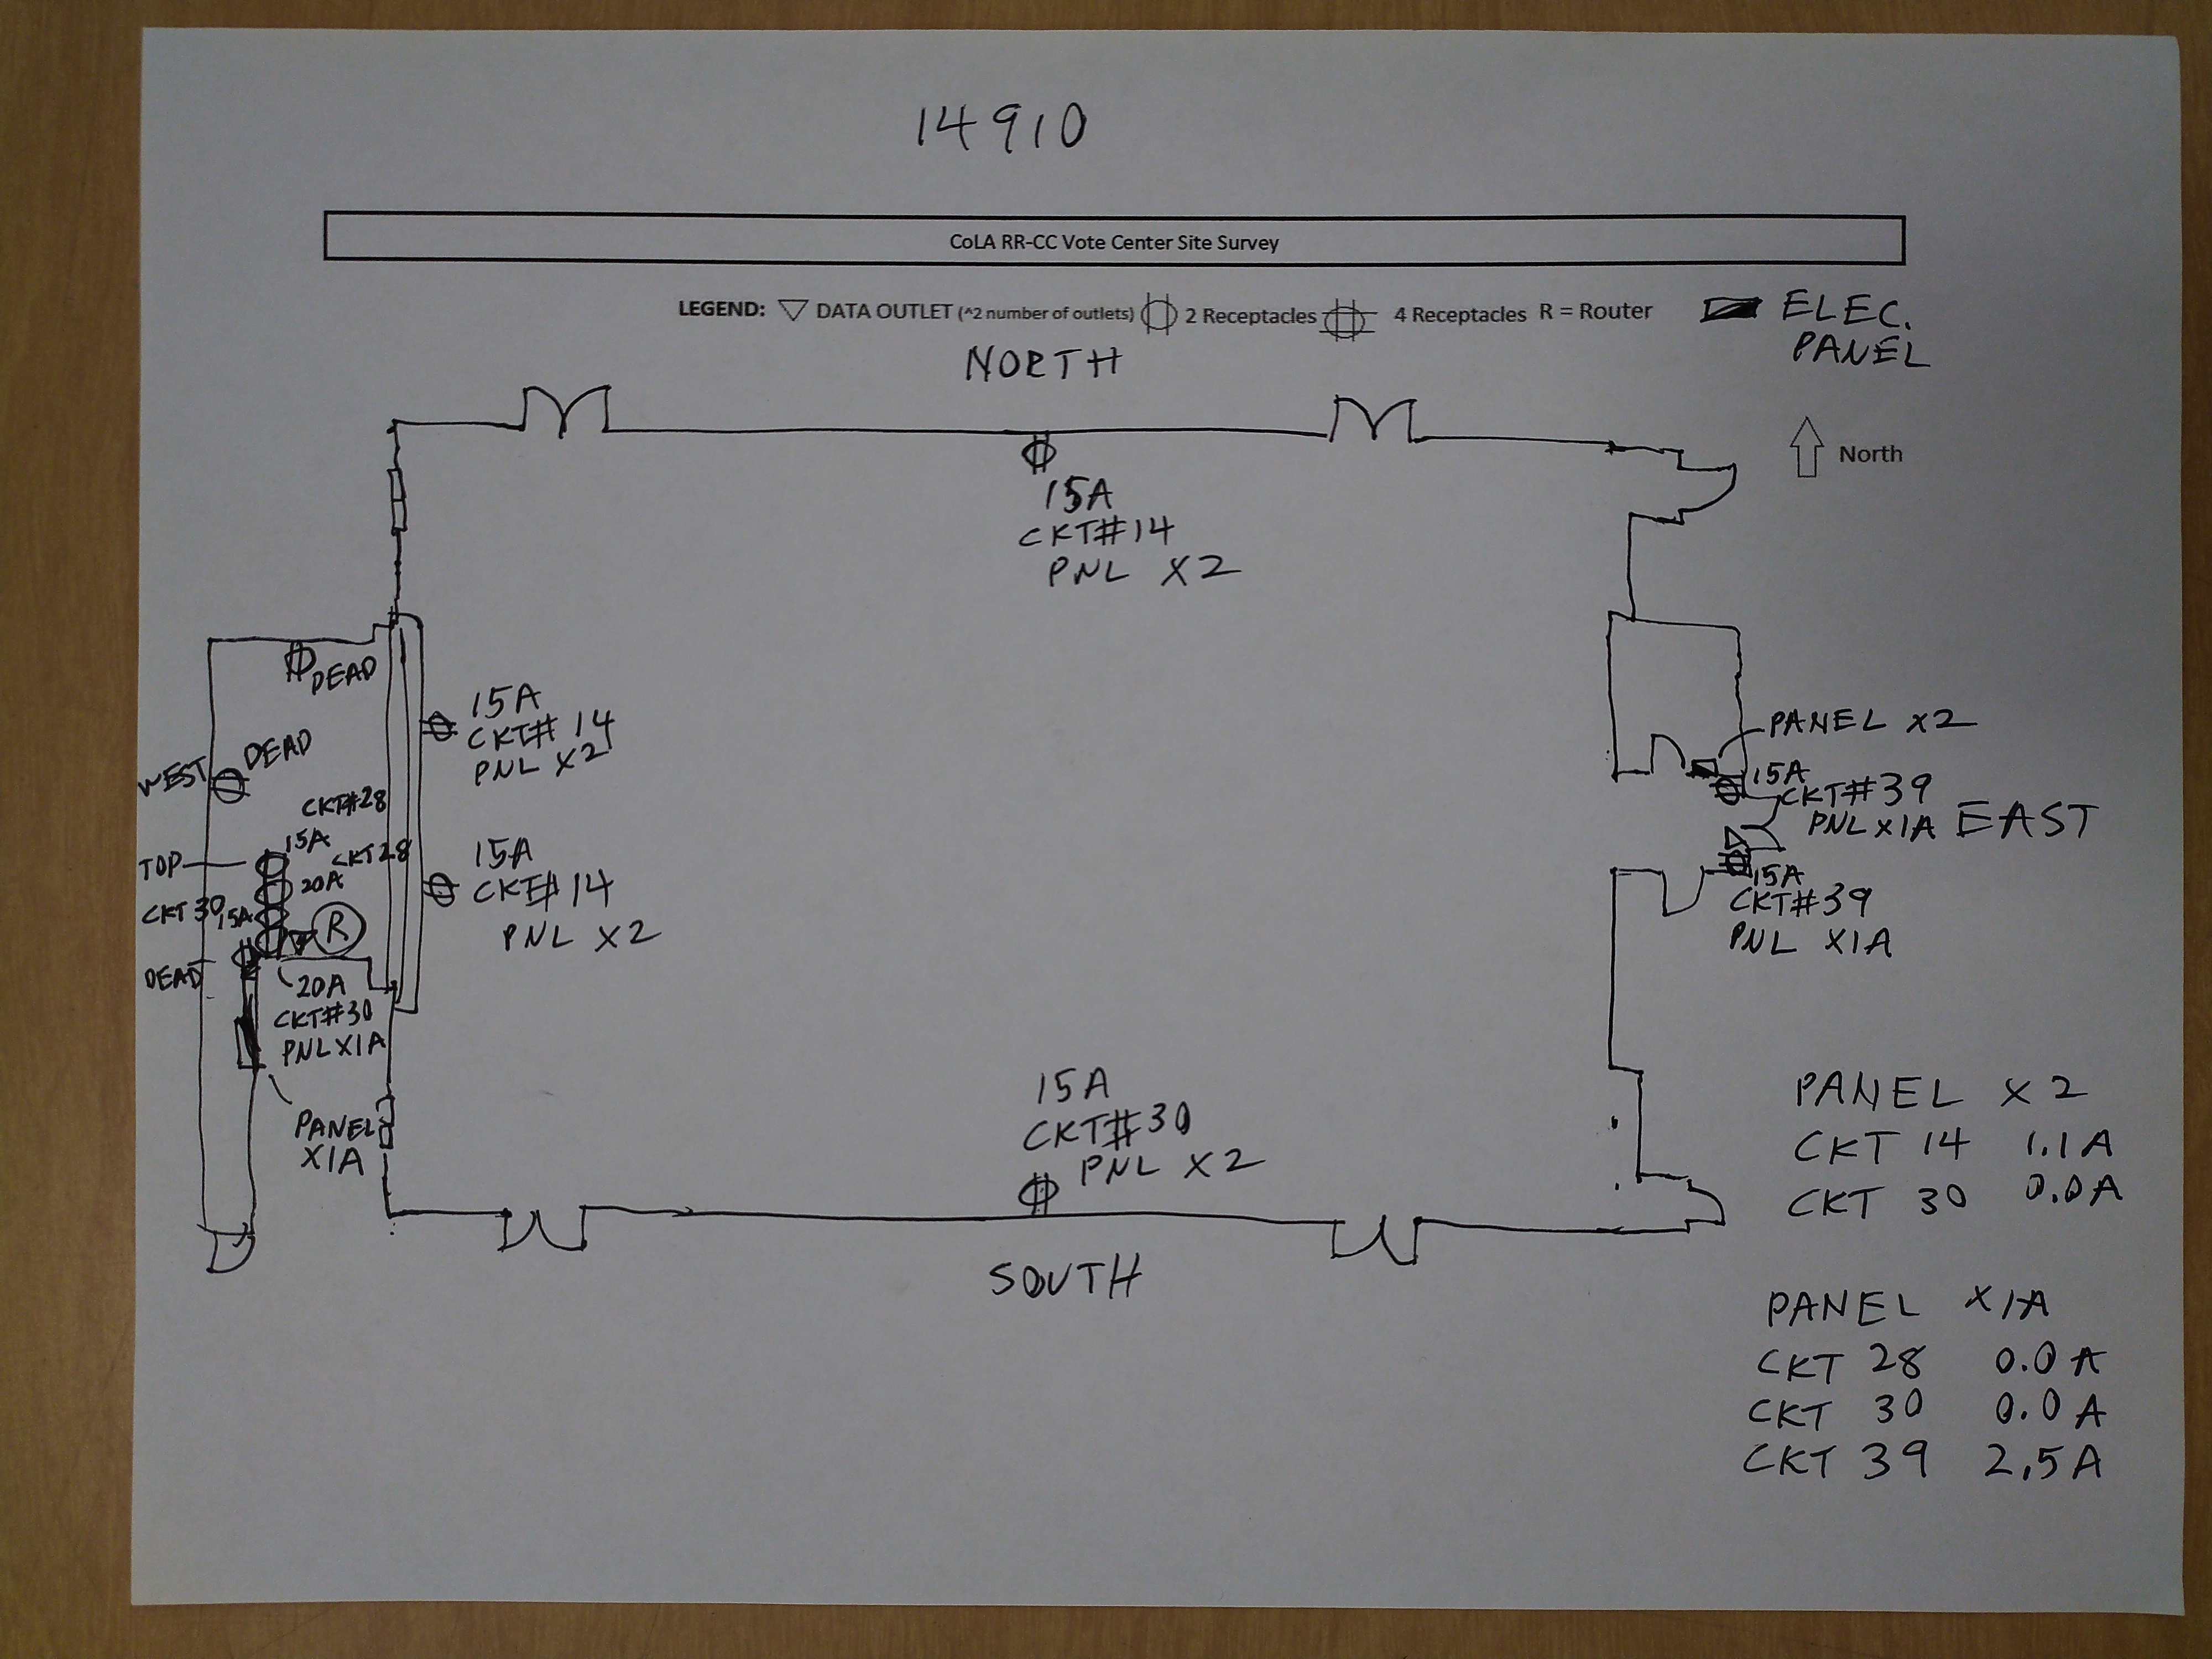 14910
CoLA RR-CC Vote Center Site Survey
LEGEND: DATA OUTLET (^2 number of outlets) 2 Receptacles 4 Receptacles R = Router
ELEC.
PANEL
NORTH
North
15A
CKT#14
PNL X2
DEAD
15A
CKT# 14
PNL X2
WEST
DEAD
CKT#28
15A
TOP
CKT 28
20A
CKT 30
15A
R
DEAD
20A
CKT#30
PNL X1A
PANEL
X1A
15A
CKT# 14
PNL X2
PANEL X2
15A
CKT#39
PNL X1A
EAST
15A
CKT#39
PNL X1A
15A
CKT#30
PNL X2
SOUTH
PANEL X2
CKT 14 1.1A
CKT 30 0.0A
PANEL X1A
CKT 28 0.0A
CKT 30 0.0A
CKT 39 2.5A